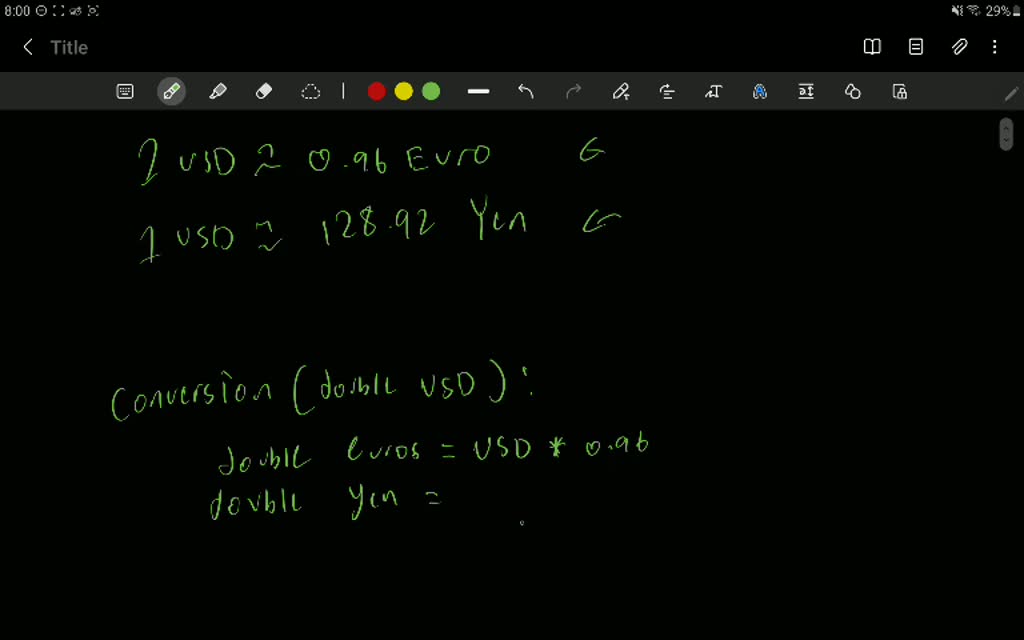 8:00 29%
Title
1 USD ≈ 0.96 Euro
1 USD ≈ 128.92 Yen
Conversion (double USD):
double euros = USD * 0.96
double yen =